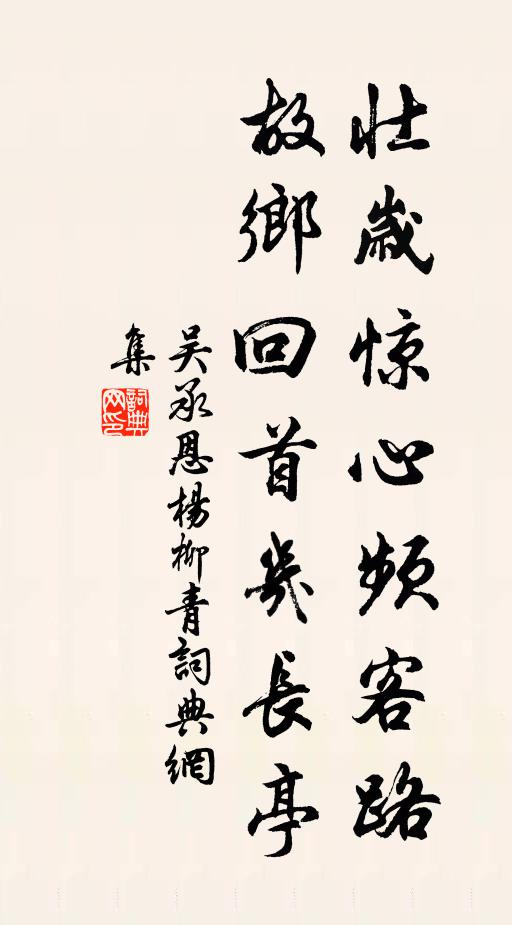 壮歲惊心頻客路
故鄉回首幾長亭
吴承恩楊柳青詞典網
集
詞典网印